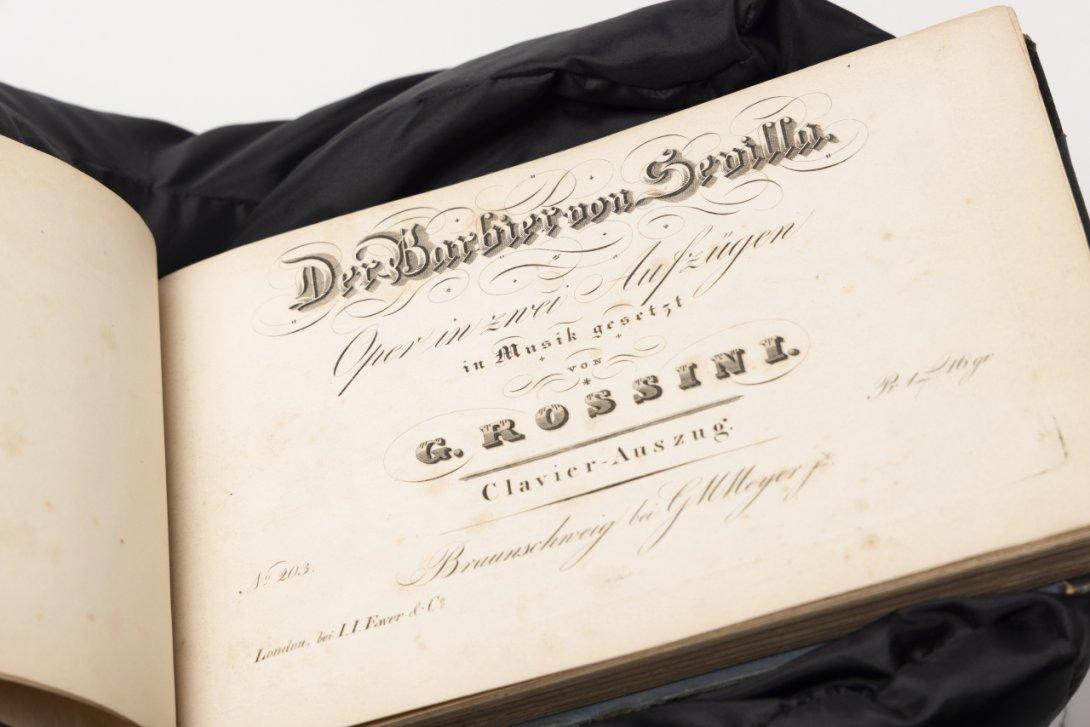 Der Barbier von Sevilla.
Oper in zwei Aufzügen
in Musik gesetzt
von
G. ROSSINI.
Clavier-Auszug.
Pr. 1 16 gr
Braunschweig bei G M Meyer jr.
No 203.
London, bei I.I. Ewer & Co